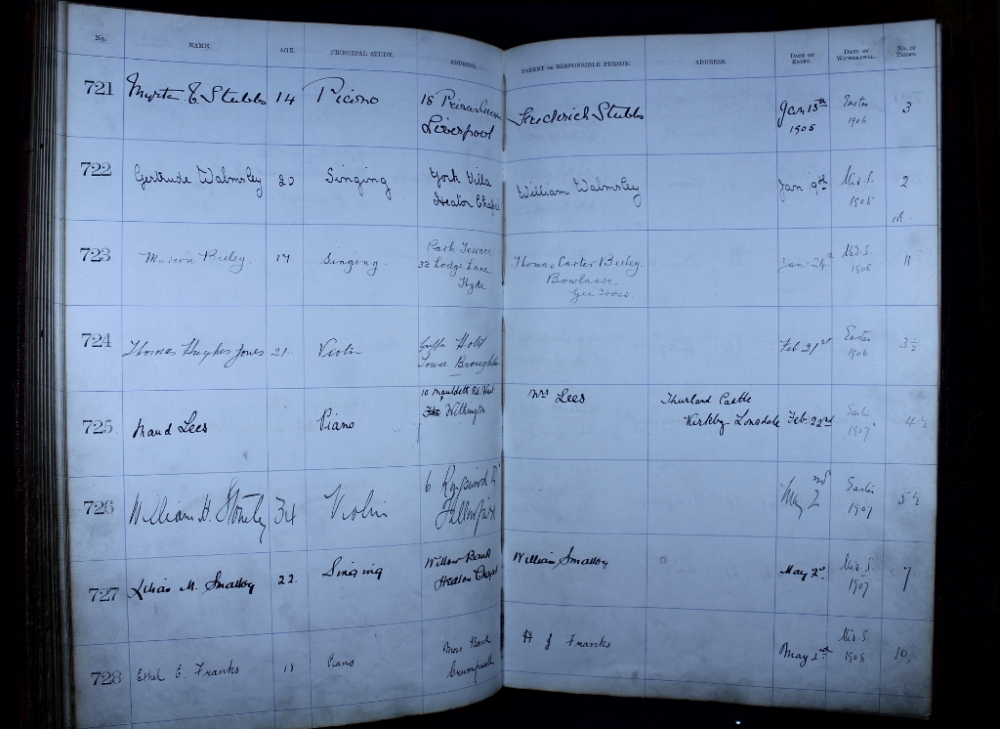 No. NAME. AGE. PRINCIPAL STUDY. ADDRESS. PARENT OR RESPONSIBLE PERSON. ADDRESS. DATE OF ENTRY. DATE OF WITHDRAWAL. NO. OF TERMS.
721 Myrtra E Stubbs 14 Piano 18 Princes Liverpool Frederick Stubbs Jan 15th 1905 Easter 1906 3
722 Gertrude Walmsley 20 Singing York Villa Heaton Chapel William Walmsley Jan 9th Mid. S. 1905 2
723 Marion Beeley 17 Singing Park Terrace 33 Lodge Lane Hyde Thomas Carter Beeley Gee Cross. Jan: 24th Mid. S. 1908 11
724 Thomas Hughes Jones 21. Violin Hotel Lower Broughton Feb 21st Easter 1906 3½
725 Maud Lees Piano 10 Mauldeth Rd. West Withington Mrs Lees Thurland Castle Kirkby Lonsdale Feb. 22nd 1907 4½
726 William H. 34 Violin 6 May 2nd Easter 1907 5½
727 Lilian M. Smalley 22. Singing Willow Bank Heaton Chapel William Smalley May 2nd Mid. S. 1907 7
728 Ethel E Franks Piano Bank Crumpsall H J Franks May 2nd Mid. S. 1908 10.